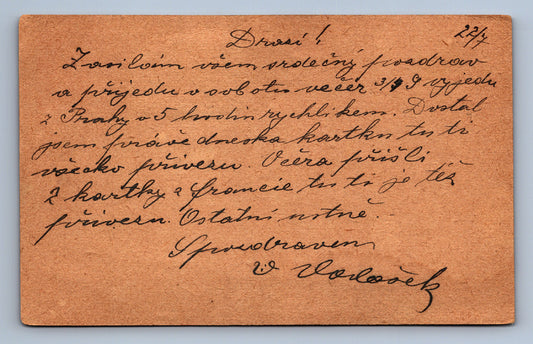 22/7
Drazí!
Zasílám všem srdečný pozdrav
a přijedu v sobotu večer 3/ 9 vyjedu
z Prahy v 5 hodin rychlíkem. Dostal
jsem právě dneska kartku tu ti
všecko přivezu. Včera přišli
2 kartky z francie tu ti je též
přivezu. Ostatní ustně.
S pozdravem
V